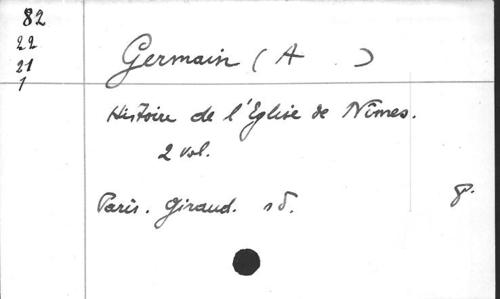 82
22
21
1
Germain (A )
Histoire de l'Eglise de Nîmes.
2 vol.
Paris. Giraud. sd. 8.